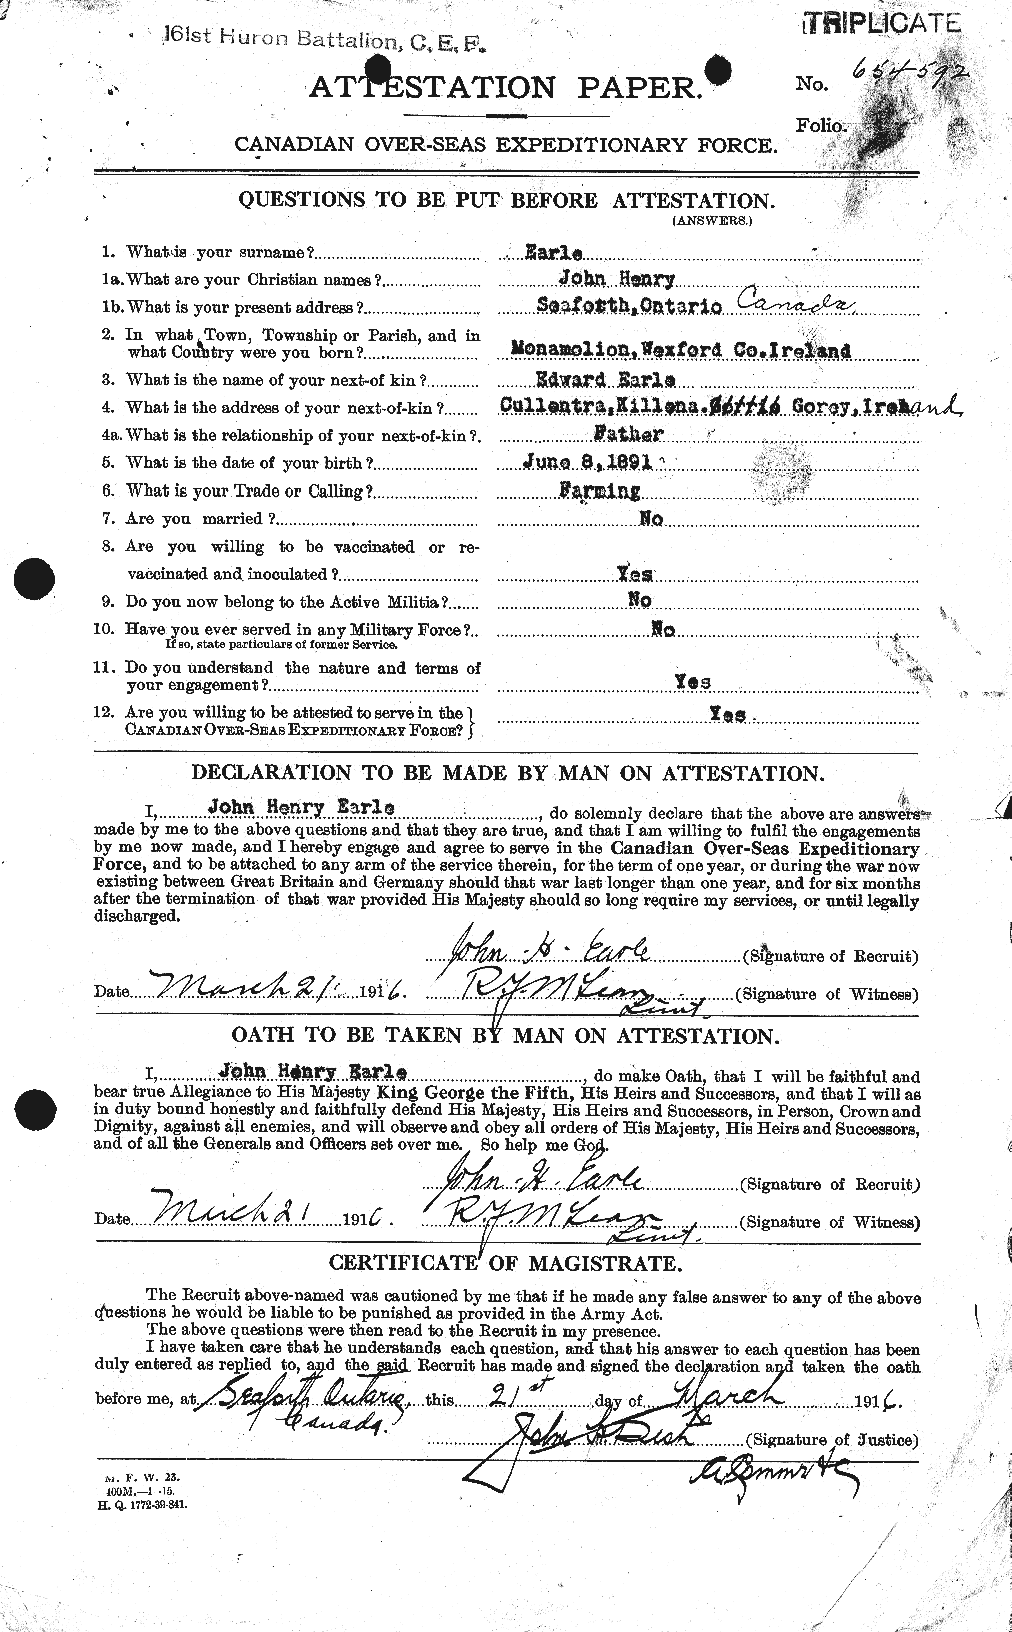 161st Huron Battalion, C. E. F.
TRIPLICATE
ATTESTATION PAPER.
No. 654592
Folio.
CANADIAN OVER-SEAS EXPEDITIONARY FORCE.
QUESTIONS TO BE PUT BEFORE ATTESTATION.
(ANSWERS.)
1. What is your surname?.......... Earle
1a. What are your Christian names?.......... John Henry
1b. What is your present address?.......... Seaforth, Ontario Canada
2. In what Town, Township or Parish, and in
what Country were you born?.......... Monamolion, Wexford Co. Ireland
3. What is the name of your next-of kin?.......... Edward Earle
4. What is the address of your next-of-kin?....... Cullentra, Killena. Gorey, Ireland
4a. What is the relationship of your next-of-kin?. Father
5. What is the date of your birth?.......... June 8, 1891
6. What is your Trade or Calling?.......... Farming
7. Are you married?.......... No
8. Are you willing to be vaccinated or re-
vaccinated and inoculated?.......... Yes
9. Do you now belong to the Active Militia?...... No
10. Have you ever served in any Military Force?.. No
If so, state particulars of former Service.
11. Do you understand the nature and terms of
your engagement?.......... Yes
12. Are you willing to be attested to serve in the } Yes.
CANADIAN OVER-SEAS EXPEDITIONARY FORCE? }
DECLARATION TO BE MADE BY MAN ON ATTESTATION.
I, John Henry Earle, do solemnly declare that the above are answers
made by me to the above questions and that they are true, and that I am willing to fulfil the engagements
by me now made, and I hereby engage and agree to serve in the Canadian Over-Seas Expeditionary
Force, and to be attached to any arm of the service therein, for the term of one year, or during the war now
existing between Great Britain and Germany should that war last longer than one year, and for six months
after the termination of that war provided His Majesty should so long require my services, or until legally
discharged.
John H. Earle (Signature of Recruit)
Date March 21 1916. R. J. McLean (Signature of Witness)
Lieut.
OATH TO BE TAKEN BY MAN ON ATTESTATION.
I, John Henry Earle, do make Oath, that I will be faithful and
bear true Allegiance to His Majesty King George the Fifth, His Heirs and Successors, and that I will as
in duty bound honestly and faithfully defend His Majesty, His Heirs and Successors, in Person, Crown and
Dignity, against all enemies, and will observe and obey all orders of His Majesty, His Heirs and Successors,
and of all the Generals and Officers set over me. So help me God.
John H. Earle (Signature of Recruit)
Date March 21 1916. R. J. McLean (Signature of Witness)
Lieut.
CERTIFICATE OF MAGISTRATE.
The Recruit above-named was cautioned by me that if he made any false answer to any of the above
questions he would be liable to be punished as provided in the Army Act.
The above questions were then read to the Recruit in my presence.
I have taken care that he understands each question, and that his answer to each question has been
duly entered as replied to, and the said Recruit has made and signed the declaration and taken the oath
before me, at Seaforth Ontario, this 21st day of March 1916.
Canada.
John (Signature of Justice)
M. F. W. 23.
400M.—1-15.
H. Q. 1772-39-841.